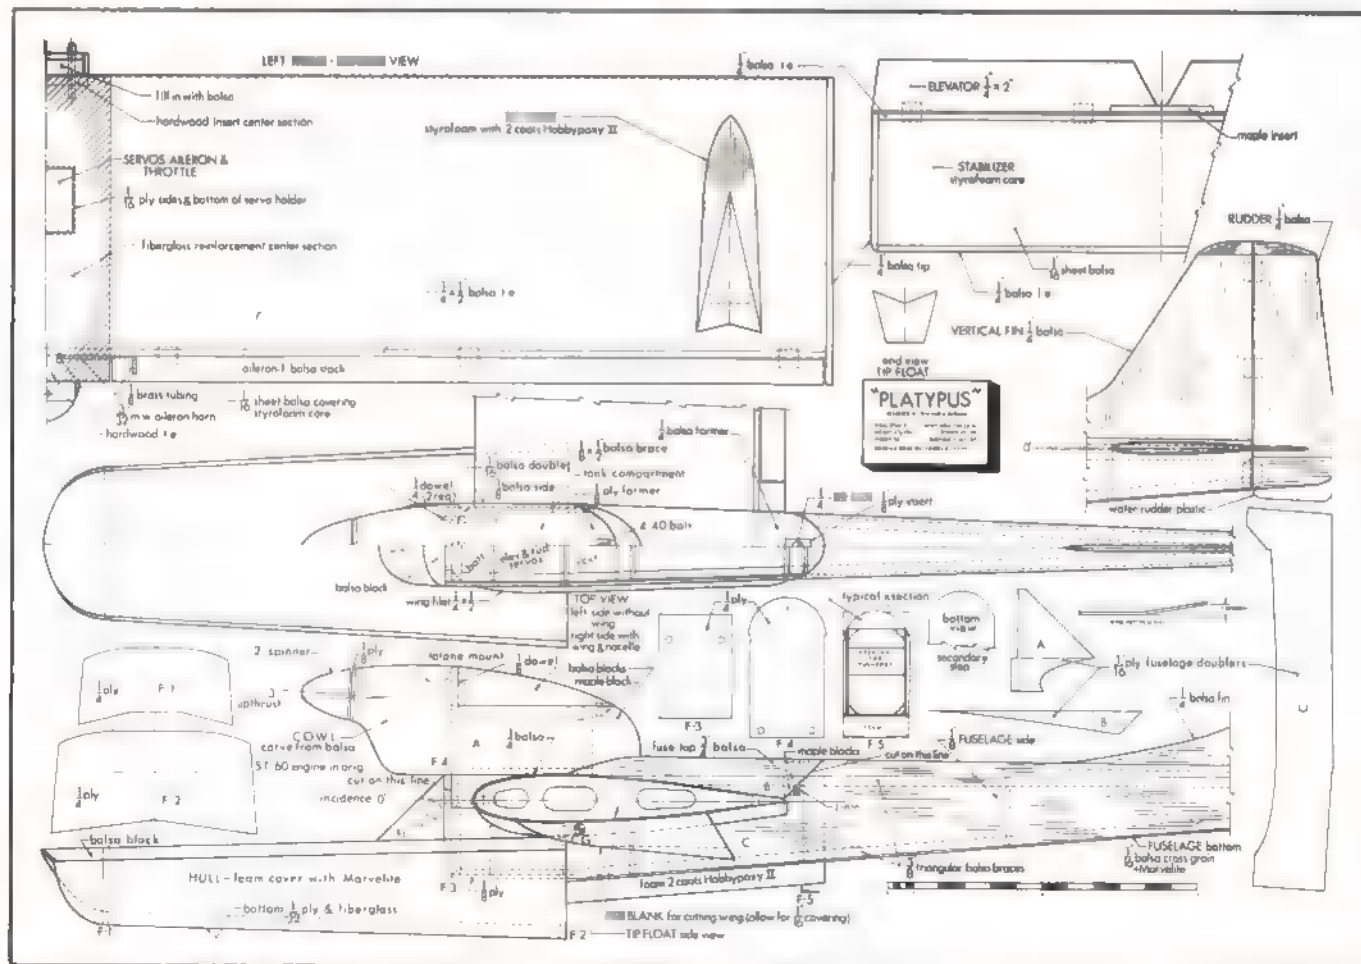 LEFT - VIEW
Fill in with balsa
hardwood insert center section
SERVOS AILERON &
THROTTLE
1/16 ply sides & bottom of servo holder
fiberglass reinforcement center section
styrofoam with 2 coats Hobbypoxy II
balsa t e
aileron-1 balsa stock
1/8 brass tubing
m.w. aileron horn
hardwood t e
1/16 sheet balsa covering
styrofoam core
balsa t e
ELEVATOR 1/4" x 2"
maple insert
STABILIZER
styrofoam core
1/16 sheet balsa
1/4 balsa tip
balsa l e
RUDDER 1/4" balsa
VERTICAL FIN 1/4 balsa
end view
TIP FLOAT
"PLATYPUS"
water rudder plastic
1/4 balsa former
balsa brace
balsa doubler
tank compartment
1/4 dowel
(2 req)
balsa side
ply former
4 40 bolts
1/4
1/8 ply insert
batt
elev & rud
servos
balsa block
wing fillet
TOP VIEW
left side without
wing
right side with
wing & nacelle
1/4 ply
balsa blocks
maple block
F-3
F-4
typical xsection
F-5
bottom
view
secondary
step
A
1/16 ply fuselage doublers
B
1/4 balsa fin
C
2 spinner
1/8 ply
upthrust
mount
dowel
COWL
carve from balsa
ST 60 engine in orig
cut on this line
incidence 0°
1/4 ply
F 1
1/4 ply
F 2
F 4
A
balsa
fuse top balsa
maple blocks
cut on this line
FUSELAGE side
B
C G
C
balsa block
HULL - foam cover with Marvelite
bottom 1/32 ply & fiberglass
F 3
1/8 ply
foam 2 coats Hobbypoxy II
triangular balsa braces
FUSELAGE bottom
1/16 balsa cross grain
+Marvelite
F-1
F-2
F-5
BLANK for cutting wing (allow for 1/16 covering)
TIP FLOAT side view